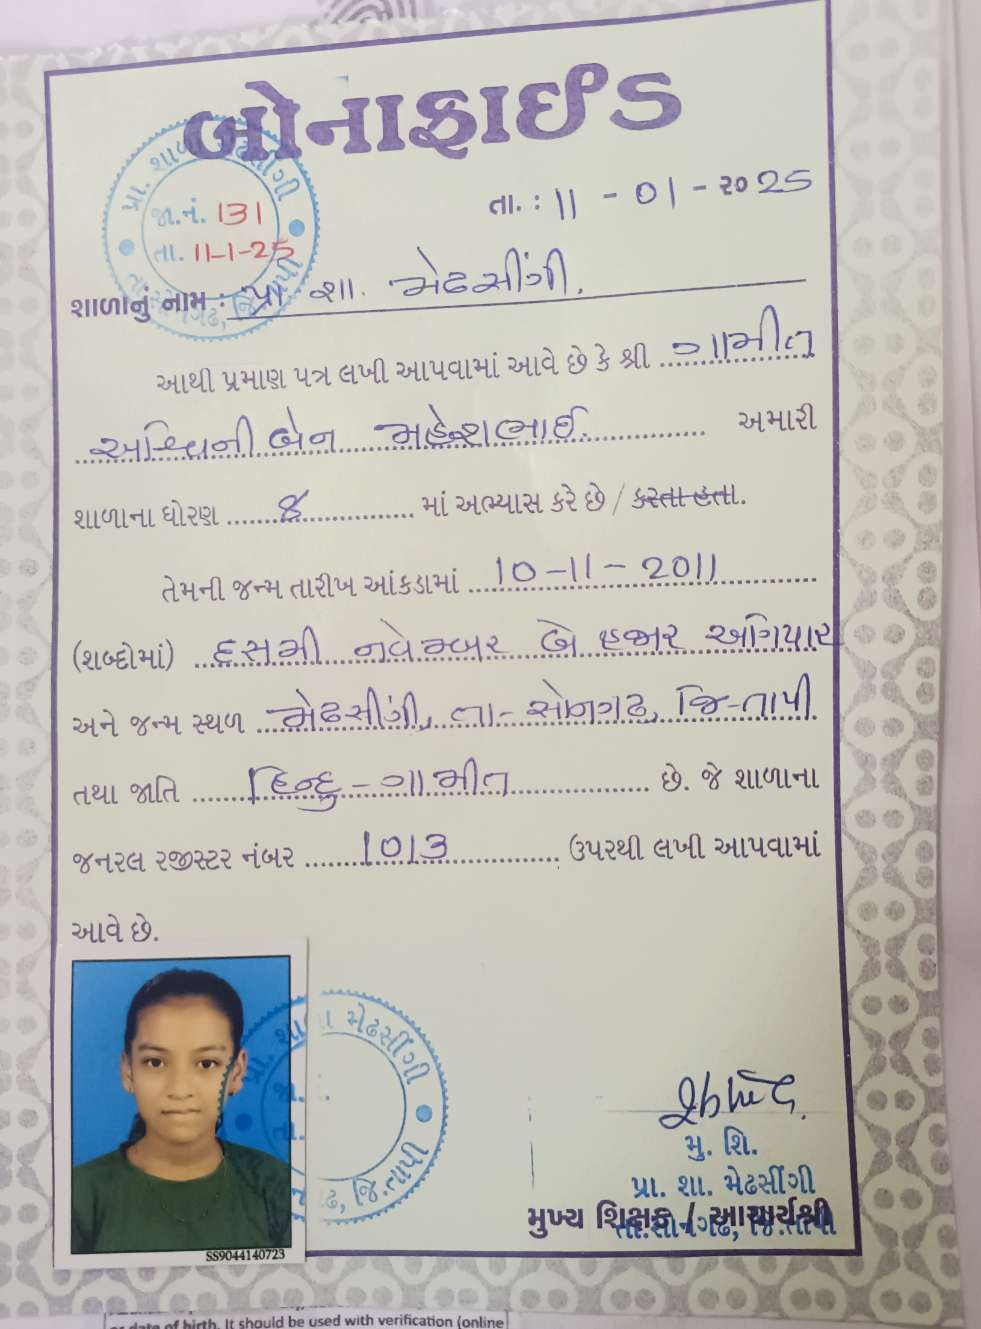 બોનાફાઈડ
પ્રા. શાળા મેઢસીંગી
જા.નં. 131
તા. 11-1-25
તા.સોનગઢ, જિ.તાપી
તા. : 11 - 01 - ૨૦25
શાળાનું નામ : પ્રા શા. મેઢસીંગી.
આથી પ્રમાણ પત્ર લખી આપવામાં આવે છે કે શ્રી ગામીત
અશ્વિની બેન મહેશભાઈ અમારી
શાળાના ધોરણ 8 માં અભ્યાસ કરે છે / કરતા હતા.
તેમની જન્મ તારીખ આંકડામાં 10-11-2011
(શબ્દોમાં) દસમી નવેમ્બર બે હજાર અગિયાર
અને જન્મ સ્થળ મેઢસીંગી, તા-સોનગઢ, જિ-તાપી
તથા જાતિ હિન્દુ-ગામીત છે. જે શાળાના
જનરલ રજીસ્ટર નંબર 1013 ઉપરથી લખી આપવામાં
આવે છે.
પ્રા. શા મેઢસીંગી
જા.
તા.
ઢ, જિ.તાપી
મુ. શિ.
પ્રા. શા. મેઢસીંગી
તા.સોનગઢ, જિ.તાપી
મુખ્ય શિક્ષક / આચાર્યશ્રી
SS9044140723
date of birth. It should be used with verification (online